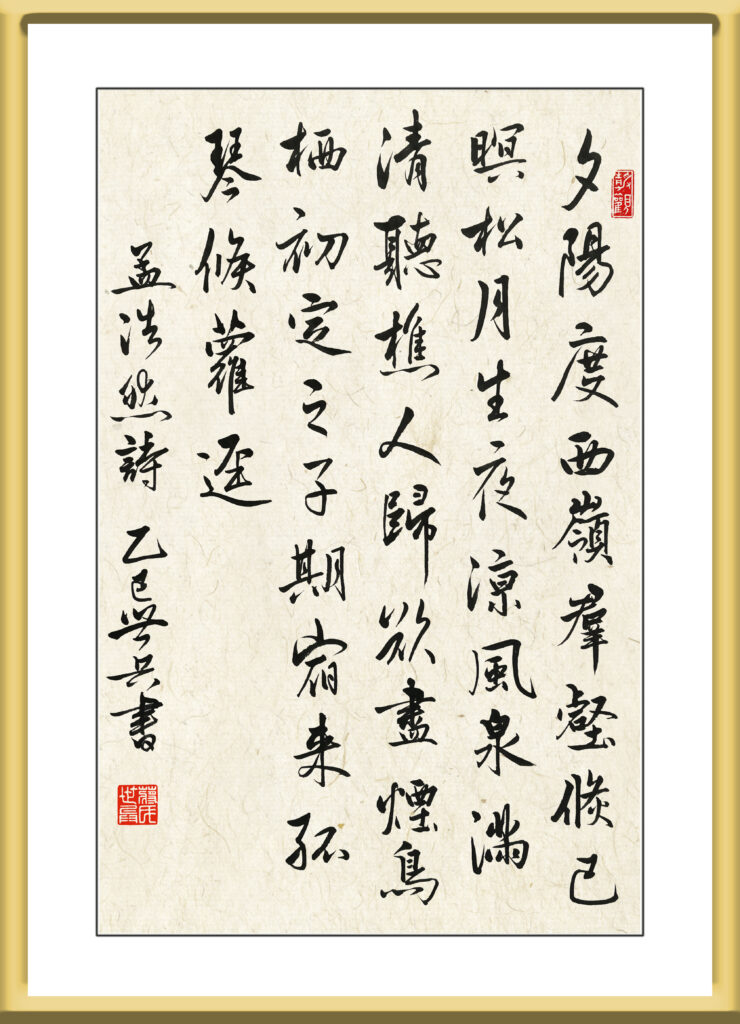 夕陽度西嶺羣壑倏已
暝松月生夜涼風泉滿
清聽樵人歸欲盡煙鳥
栖初定之子期宿来孤
琴候蘿逕
孟浩然詩 乙巳 書